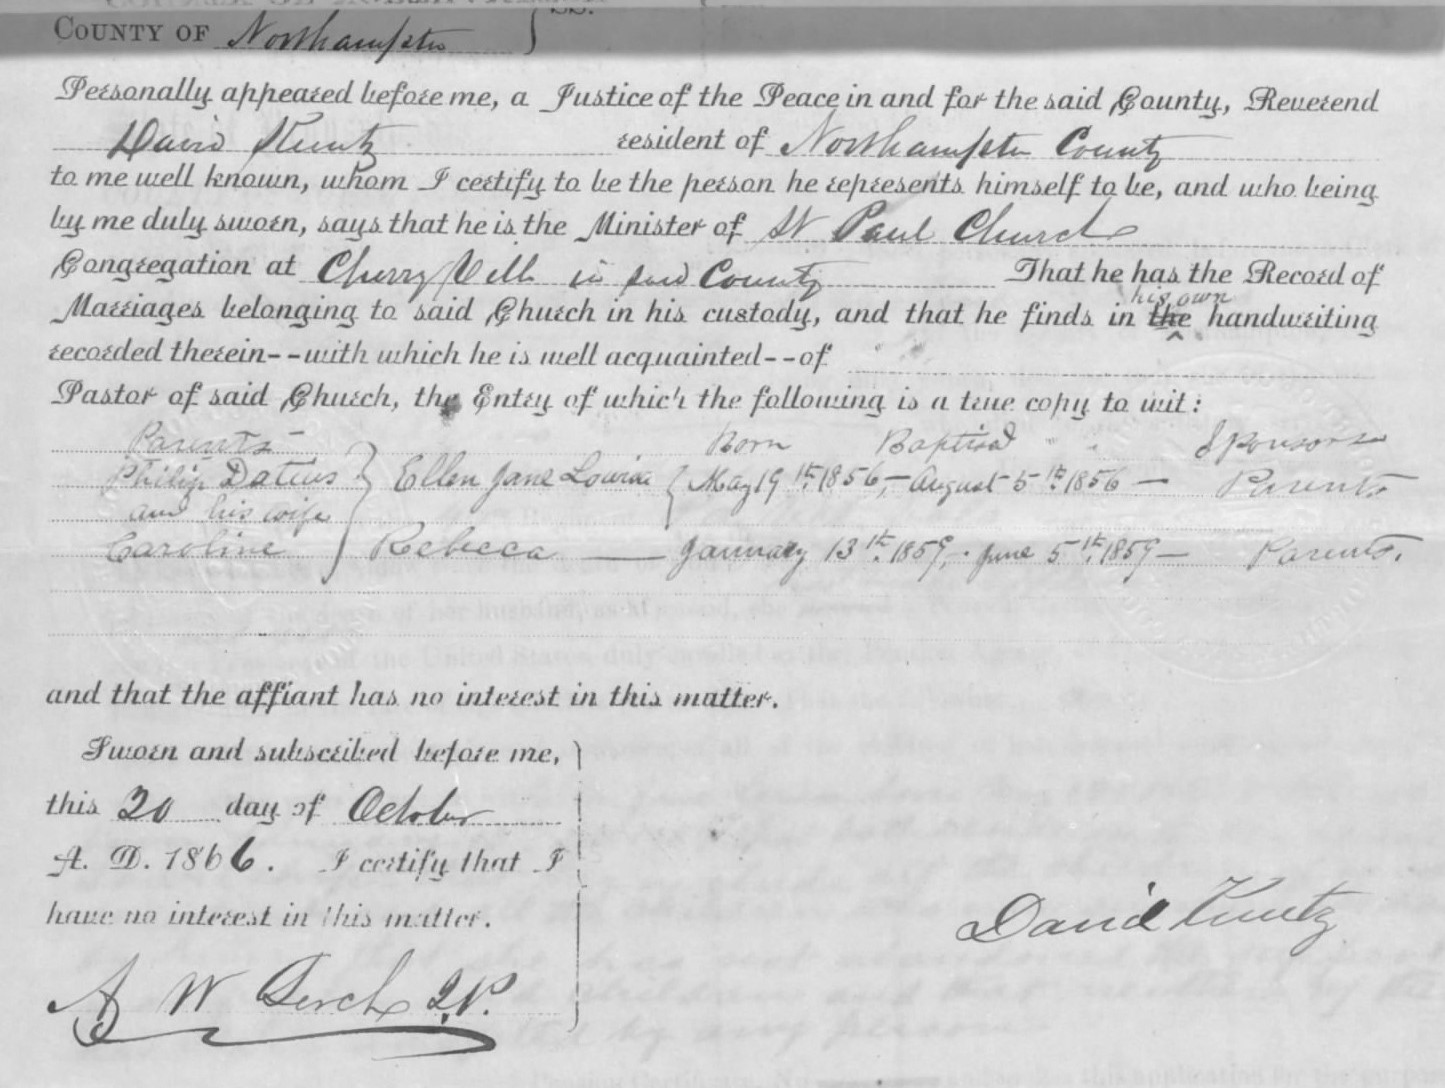 COUNTY OF Northampton } SS.
Personally appeared before me, a Justice of the Peace in and for the said County, Reverend
David Kuntz resident of Northampton County
to me well known, whom I certify to be the person he represents himself to be, and who being
by me duly sworn, says that he is the Minister of St Paul Church
Congregation at Cherryville in said County That he has the Record of
Marriages belonging to said Church in his custody, and that he finds in the his own handwriting
recorded therein--with which he is well acquainted--of
Pastor of said Church, the Entry of which the following is a true copy to wit:
Parents Born Baptised Sponsors
Philip Datius } Ellen Jane Lowina { May 19th. 1856,- August 5th. 1856 - Parents
and his wife
Caroline } Rebecca — January 13th. 1859,. June 5th. 1859 - Parents.
and that the affiant has no interest in this matter.
Sworn and subscribed before me,
this 20 day of October
A. D. 1866. I certify that I
have no interest in this matter.
David Kuntz
A W Lerch J.P.